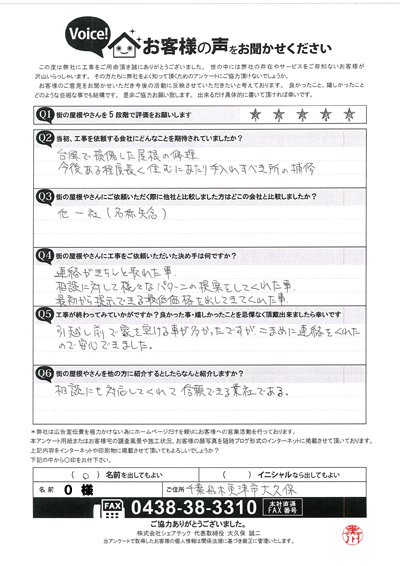 Voice!
お客様の声をお聞かせください
この度は弊社に工事をご用命頂き誠にありがとうございました。世の中には弊社の存在やサービスをご存知ないお客様が
沢山いらっしゃいます。その方たちに弊社をよく知って頂くためのアンケートにご協力頂けないでしょうか。
お客様のご意見をお聞かせいただき今後の活動に反映させていただきたいと考えております。良かったこと、嬉しかったこと
どのような些細な事でも結構です。是非ご協力お願い致します。出来るだけ具体的に書いて頂ければ幸いです。
Q1 街の屋根やさんを5段階で評価をお願いします ★ ★ ★ ★ ★
Q2 当初、工事を依頼する会社にどんなことを期待されていましたか?
台風で損傷した屋根の修理
今後ある程度長く住むにあたり手入れすべき所の補修
Q3 街の屋根やさんにご依頼いただく際に他社と比較しました方はどこの会社と比較しましたか?
他一社(名称失念)
Q4 街の屋根やさんに工事をご依頼いただいた決め手は何ですか?
連絡がきちんと取れた事.
相談に対して様々なパターンの提案をしてくれた事.
最初から提示できる最低価格を出してきてくれた事.
Q5 工事が終わってみていかがですか?良かった事・嬉しかったことを忌憚なく頂戴出来ましたら幸いです
引越し前で家を空ける事が多かったですが、こまめに連絡をくれた
ので安心できました。
Q6 街の屋根やさんを他の方に紹介するとしたらなんと紹介しますか?
相談にも対応してくれて信頼できる業社である。
*弊社は広告宣伝費を極力かけない為にホームページだけを頼りにお客様への営業活動を行っております。
本アンケート用紙またはお客様宅の調査風景や施工状況、お客様の顔写真を随時ブログ形式のインターネットに掲載させて頂いております。
上記内容をインターネットや印刷物に掲載させて頂いてもよろしいでしょうか?
下記の中から○印をお付下さい。
( ○ ) 名前を出してもよい ( ) イニシャルなら出してもよい
名前 O 様 ご住所 千葉県木更津市大久保
FAX 0438-38-3310 本社直通 FAX番号
ご協力ありがとうございました。
株式会社シェアテック 代表取締役 大久保 誠二
当アンケートで取得したお客様の個人情報は関係法規に基づき厳正に管理いたします。